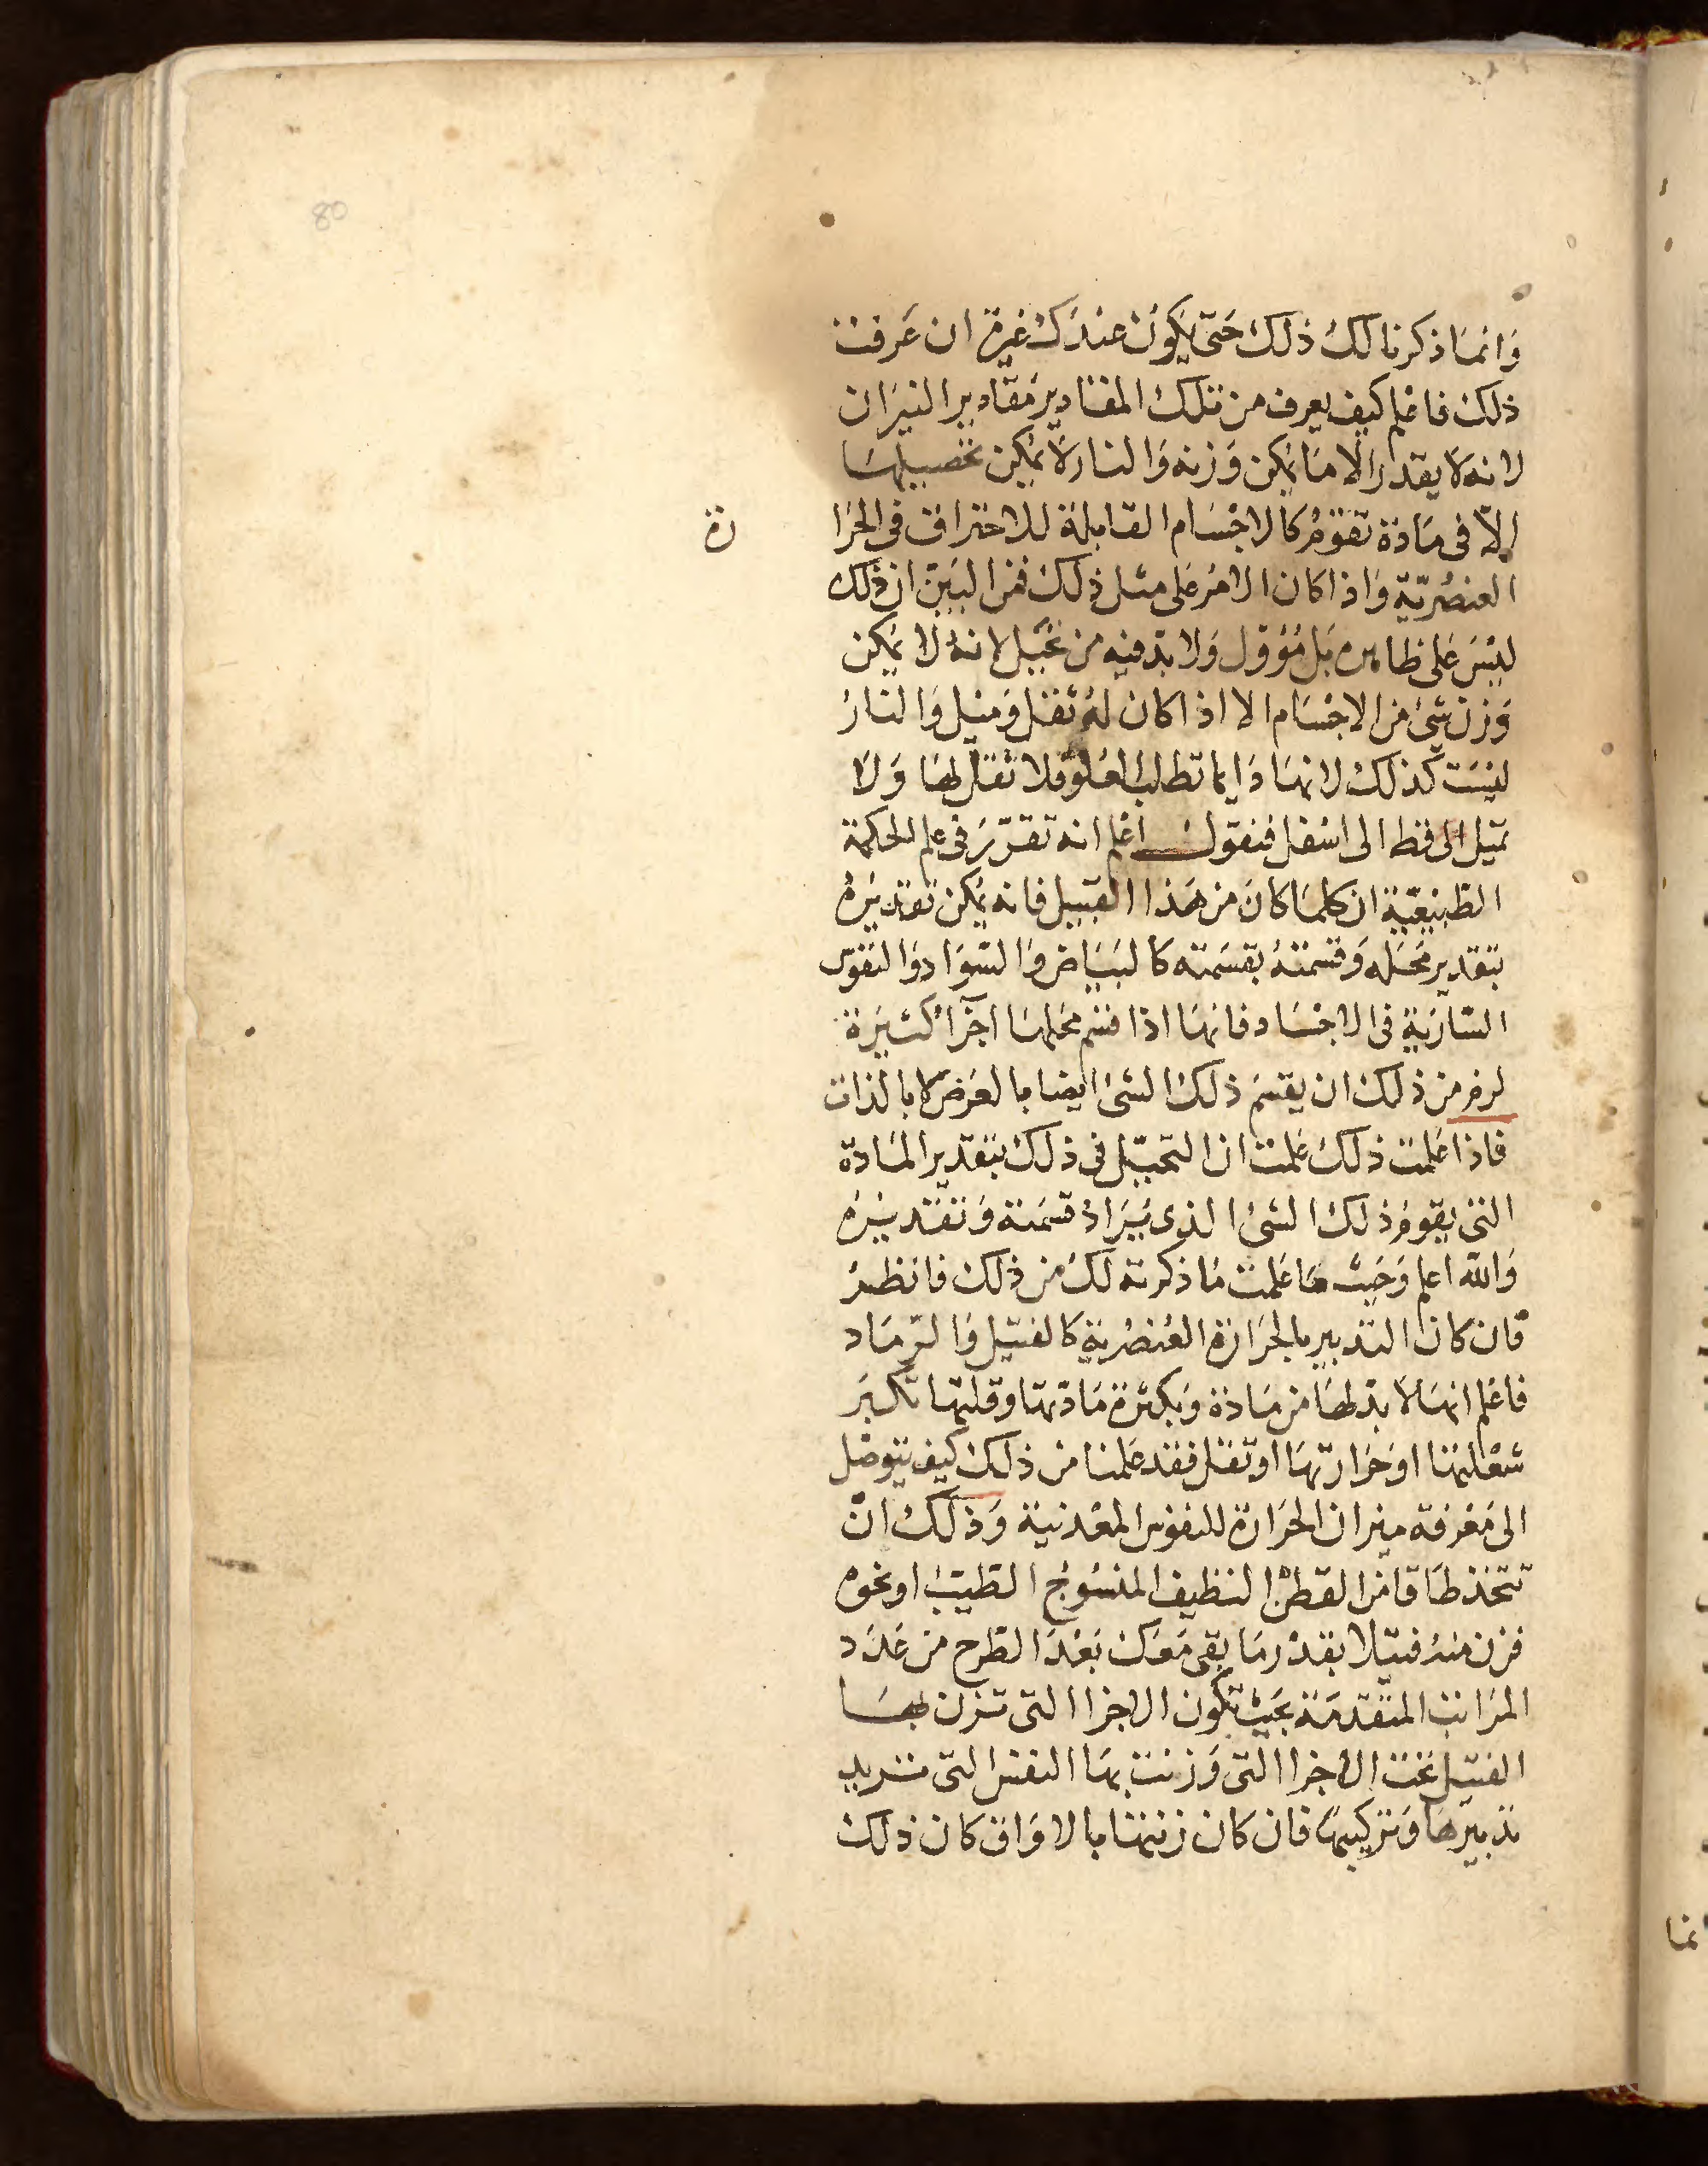 80
وَانمَا ذكرنا لكَ ذلكَ حَتى يكونُ عندَكَ غيرة ان عَرفت
ذلك فاعْلم كيف يعرف من تلك المقادير مَقادير النيَران
لانه لا يقدر الا مَا يمكن وَزنه وَالنار لا يمكن تحصيلهَا
الاّ فى مَادة تقوّمُ كالاجْسَام القابلة للاحتراق فى الحرَا رة
العنصُريّة وَاذا كان الامرُ على مثل ذلكَ فمن البَيّن ان ذلك
ليْسَ عَلى ظاهره بَل مُؤوّل وَلا بد فيه من تحَيّل لانهُ لا يمكن
وَزن شئ من الاجْسَام الا اذا كان لهُ ثقل وَميْل وَالنارُ
ليْسَت كذلكَ لانهَا دَايما تطلب العُلوّ فلا ثقل لهَا وَلا
تميل الى قط الى اسْفل فنقول اعْلم انه تقرّرَ فى علم الحكمة
الطّبيْعيّة ان كلمَا كانَ من هَذا القبيل فانه يمكن تقديرُهُ
بتقدير مَحَله وَقسْمتهُ بقسْمَته كالبَيَاض وَالسّوَاد وَالنفوس
السّاريَة فى الاجْسَاد فانهَا اذا قسم محَلهَا اجزآء كثيَرة
لزم من ذلك ان يقسَم ذلكَ الشئ ايضا بالعَرَض لا بالذات
فاذا عَلمت ذلكَ عَلمتَ ان التحيّل فى ذلكَ بتقدير المَادة
التى يقومُ ذلكَ الشئ الذى يُرَادُ قسْمَته وَتقديْرُه
وَالله اعلم وَحَيث مَا عَلمت مَا ذكرته لكَ من ذلكَ فانظرُ
فان كان التدبير بالحَرَارة العُنصُرية كالفتيل وَالرّمَاد
فاعْلم انهَا لا بد لهَا من مَادة وَبكثرَة مَادتهَا وقلتها تكبَر
شعْلتهَا او حَرَارتهَا او تقل فقد عَلمنا من ذلكَ كيف يتوصّل
الى مَعْرفة ميزان الحَرَارة للنفوس المعْدنية وَذلكَ انْ
تتخذ طَاقا من القطن النظيف المنسُوج الطيّب او نحوه
فزن منهُ فتيلا بقدْر مَا بقى مَعَكَ بَعْدَ الطّرح من عَدَد
المَراتب المتقدّمَة بحَيث تكون الاجزا التى تزن بهَا
الفتيل تحت الاجزا التى وَزنت بهَا النفس التى تريد
تدبيرهَا وَتركيبهَا فان كان زنتهَا بالاوَاق كان ذلك
نما